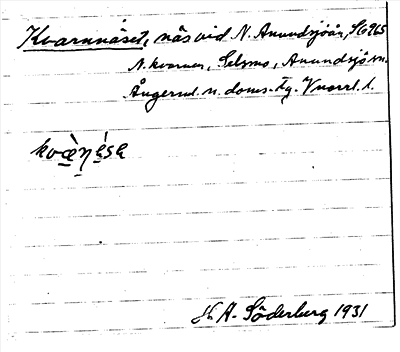 Kvarnnäset, näs vid N. Anundsjöån, S6965
N. kvarnen, Selsmo, Anundsjö sn.
Ångerml. n. doms. fg. Vnorrl. l.
kvæ̀ṇésa
H A. Söderberg 1931